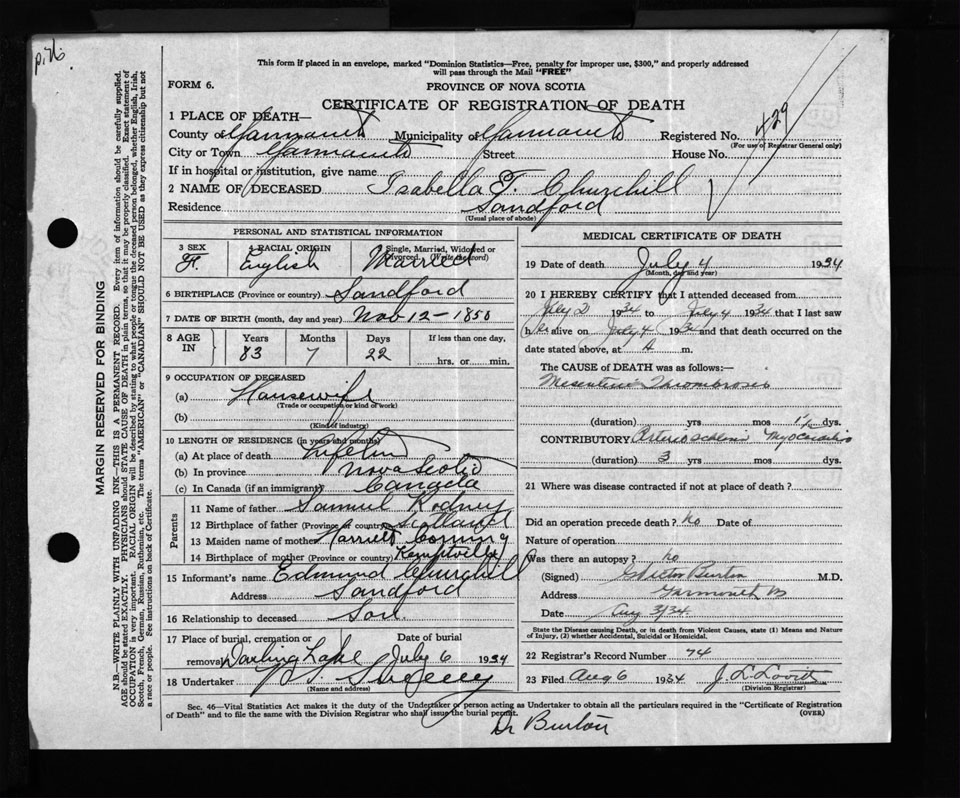 p. 76.
This form if placed in an envelope, marked "Dominion Statistics—Free, penalty for improper use, $300," and properly addressed
will pass through the Mail "FREE"
FORM 6.
PROVINCE OF NOVA SCOTIA
CERTIFICATE OF REGISTRATION OF DEATH
1 PLACE OF DEATH—
County of Yarmouth Municipality of Yarmouth Registered No. 429
(For use of Registrar General only)
City or Town Yarmouth Street House No.
If in hospital or institution, give name
2 NAME OF DECEASED Isabella F. Churchill
Residence Sandford
(Usual place of abode)
PERSONAL AND STATISTICAL INFORMATION
3 SEX 4 RACIAL ORIGIN 5 Single, Married, Widowed or
Divorced. (Write the word)
F. English Married
6 BIRTHPLACE (Province or country) Sandford
7 DATE OF BIRTH (month, day and year) Nov 12—1850
8 AGE IN Years Months Days If less than one day,
83 7 22 hrs. or min.
9 OCCUPATION OF DECEASED
(a) Housewife
(Trade or occupation or kind of work)
(b)
(Kind of industry)
10 LENGTH OF RESIDENCE (in years and months)
(a) At place of death Lifetime
(b) In province Nova Scotia
(c) In Canada (if an immigrant) Canada
Parents
11 Name of father Samuel Rodney
12 Birthplace of father (Province or country) Scotland
13 Maiden name of mother Harriett Corning
14 Birthplace of mother (Province or country) Kemptville
15 Informant's name Edmund Churchill
Address Sandford
16 Relationship to deceased Son
17 Place of burial, cremation or Date of burial
removal Darling Lake July 6 1934
18 Undertaker Sweeney
(Name and address)
MEDICAL CERTIFICATE OF DEATH
19 Date of death July 4 1934
(Month, day and year)
20 I HEREBY CERTIFY that I attended deceased from
July 2 1934 to July 4 1934 that I last saw
her alive on July 4 1934 and that death occurred on the
date stated above, at A m.
The CAUSE OF DEATH was as follows:—
Mesenteric Thrombosis
(duration) yrs mos 1½ dys.
CONTRIBUTORY Arterio sclerosis Myocarditis
(duration) 3 yrs mos dys.
21 Where was disease contracted if not at place of death?
Did an operation precede death? no Date of
Nature of operation
Was there an autopsy? no
(Signed) G Victor Burton M.D.
Address Yarmouth
Date Aug 3/34.
State the Disease causing Death, or in death from Violent Causes, state (1) Means and Nature
of Injury, (2) whether Accidental, Suicidal or Homicidal.
22 Registrar's Record Number 74
23 Filed Aug 6 1934 J. L. Lovitt
(Division Registrar)
Sec. 46—Vital Statistics Act makes it the duty of the Undertaker or person acting as Undertaker to obtain all the particulars required in the "Certificate of Registration
of Death" and to file the same with the Division Registrar who shall issue the burial permit. (OVER)
Dr Burton
MARGIN RESERVED FOR BINDING
N.B.—WRITE PLAINLY WITH UNFADING INK—THIS IS A PERMANENT RECORD. Every item of information should be carefully supplied.
AGE should be stated EXACTLY. PHYSICIANS should STATE CAUSE OF DEATH in plain terms, so that it may be properly classified. Exact statement of
OCCUPATION is very important. RACIAL ORIGIN will be described by stating to what people or tongue the deceased person belonged, whether English, Irish,
Scotch, French, German, Russian, Ruthenian, etc. The terms "AMERICAN" or "CANADIAN" SHOULD NOT BE USED as they express citizenship but not
a race or people. See instructions on back of Certificate.